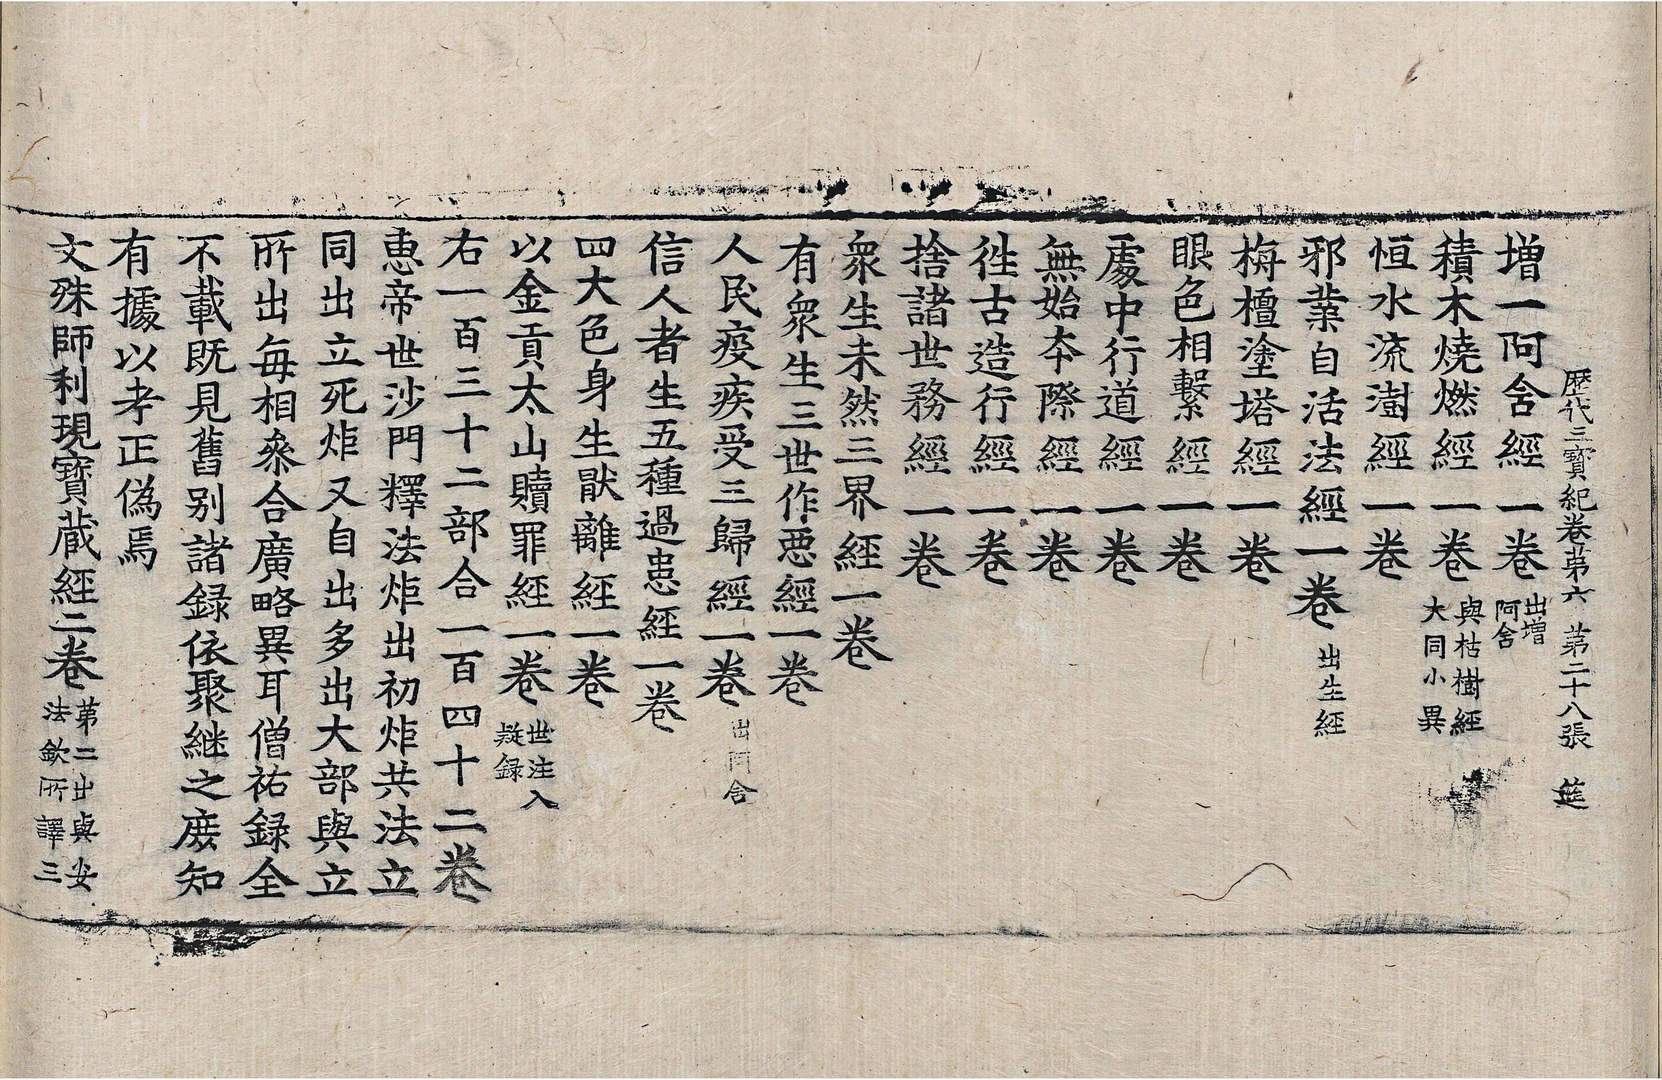 歷代三寶紀卷第六　第二十八張　筵
增一阿含經一卷 出增阿含
積木燒燃經一卷 與枯樹經大同小異
恒水流澍經一卷
邪業自活法經一卷 出生經
栴檀塗塔經一卷
眼色相繫經一卷
處中行道經一卷
無始夲際經一卷
徃古造行經一卷
捨諸世務經一卷
衆生未然三界經一卷
有衆生三世作惡經一卷
人民疫疾受三歸經一卷 出阿含
信人者生五種過患經一卷
四大色身生猒離經一卷
以金貢太山贖罪經一卷 世注入疑録
右一百三十二部合一百四十二卷
惠帝世沙門釋法炬出初炬共法立
同出立死炬又自出多出大部與立
所出每相叅合廣略異耳僧祐録全
不載既見舊别諸録依聚継之庻知
有據以考正偽焉
文殊師利現寶蔵經二卷 第二出與安法欽所譯三